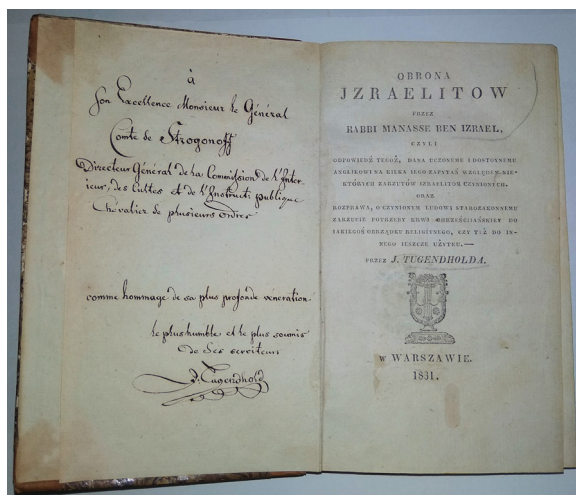 à
Son Excellence Monsieur le Général
Comte de Strogonoff
Directeur Général de la Commission de l'Inter-
ieur, des Cultes et de l'Instructi publique
Chevalier de plusieurs ordres
comme hommage de sa plus profonde vénération
le plus humble et le plus soumis
de Ses serviteurs
J. Tugendhold
OBRONA
JZRAELITOW
PRZEZ
RABBI MANASSE BEN IZRAEL,
CZYLI
ODPOWIEDŹ TEGOŻ, DANA UCZONEMU I DOSTOYNEMU
ANGLIKOWI NA KILKA IEGO ZAPYTAŃ WZGLĘDEM NIE-
KTÓRYCH ZARZUTÓW IZRAELITOM CZYNIONYCH.
ORAZ
ROZPRAWA, O UCZYNIONYM LUDOWI STAROZAKONNEMU
ZARZUCIE POTRZEBY KRWI CHRZEŚCIJAŃSKIEY DO
IAKIEGOŚ OBRZĄDKU RELIGIYNEGO, CZY TEŻ DO IN-
NEGO IESZCZE UŻYTKU.—
PRZEZ J. TUGENDHOLDA.
w WARSZAWIE.
1831.